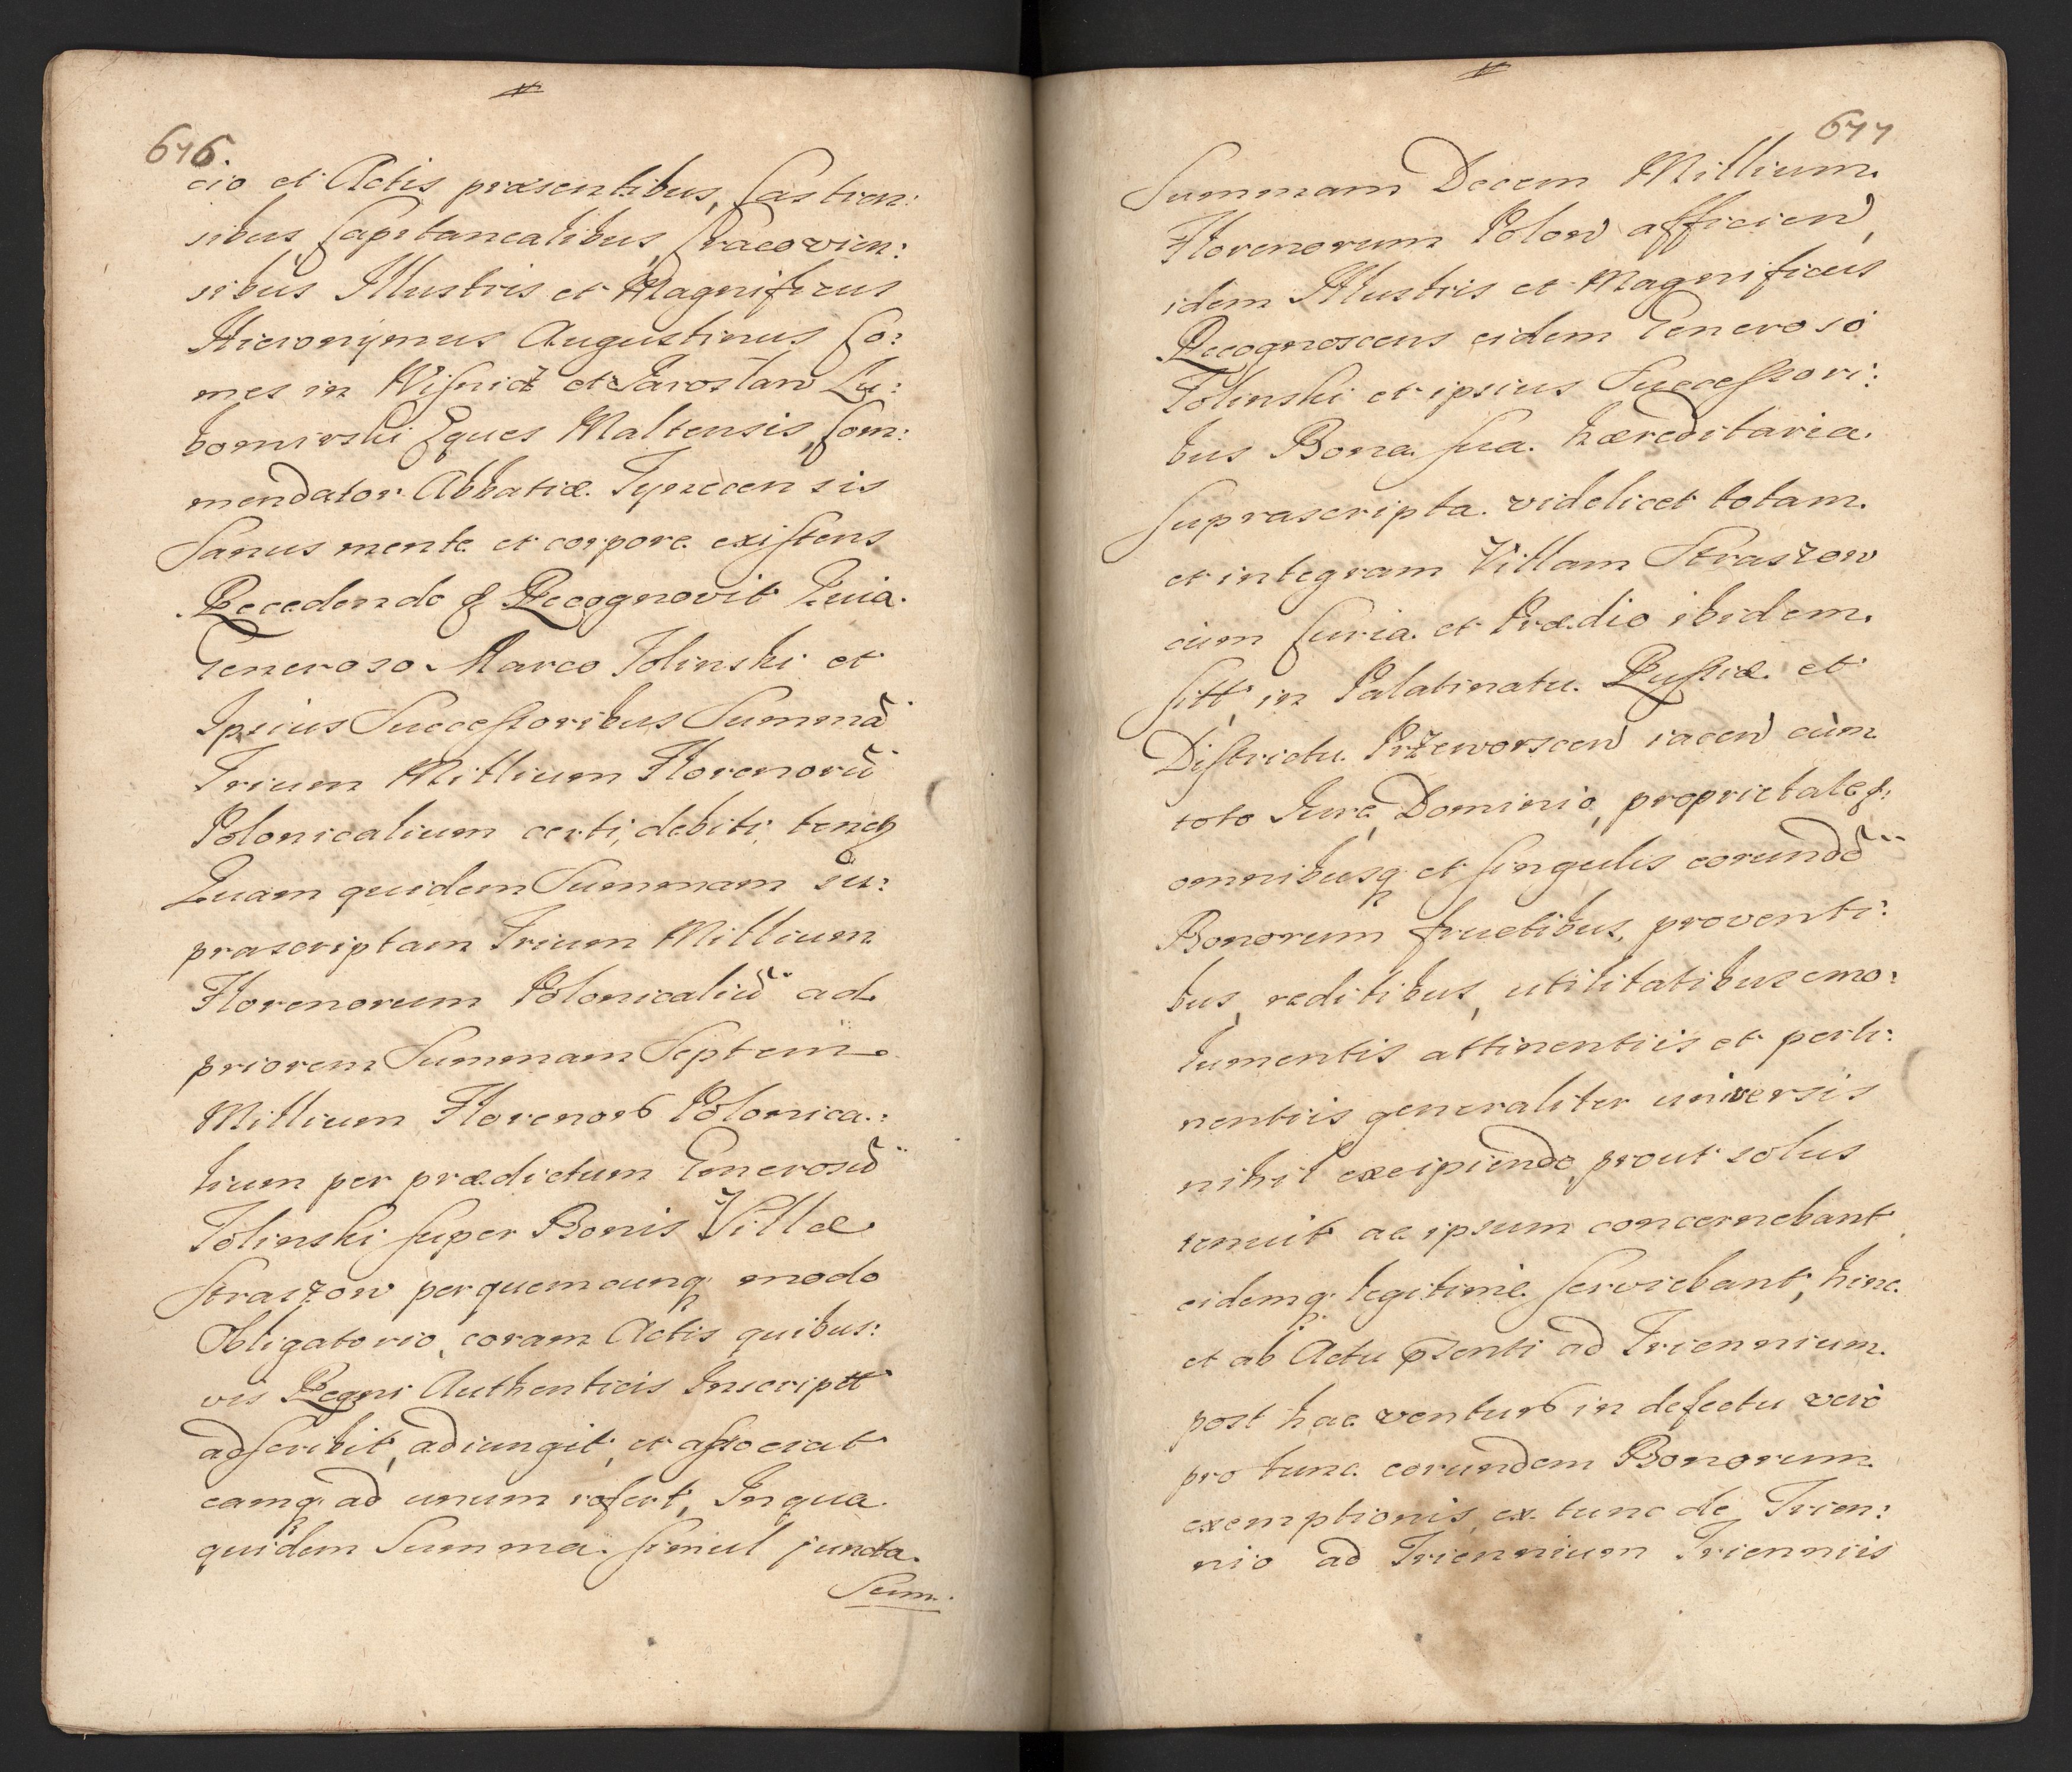 676.
cio et Actis præsentibus, Castren:
sibus Capitanealibus Cracovien:
sibus Illustris et Magnificus
Hieronÿmus Augustinus Co:
mes in Wiſnicz et Jarosław Lu:
bomirski Eques Maltensis, Com:
mendator Abbatiæ Tynecensis
Sanus mente et corpore exiſtens
Recedendo &c Recognovit Quia
Generoso Marco Jolinski et
Ipsius Succeſsoribus Summã
Trium Millium Florenorũ
Polonicalium certi, debiti, teneƷ
Quam quidem Summam su:
prascriptam Trium Millium
Florenorum Polonicaliũ ad
priorem Summam Septem
Millium Florenorƶ Polonica:
lium per prædictum Generosũ
Jolinski ſuper Bonis Villæ
Straszow perquemcunqꝫ modo
Obligatorio, coram Actis quibus:
vis Regni Authenticis Inscriptt
adſcribit, adiungit, et aſsociat
eamqꝫ ad unum refert, In qua
quidem Summa ſimul juncta
Sum:
677
Summam Decem Millium
Florenorum Polon afficien,
idem Illustris et Magnificus
Recognoscens eidem Generoso
Jolinski et ipsius Succeſsori:
bus Bona ſua hæreditaria
ſuprascripta videlicet totam
et integram Villam Straszow
cum Curia et Prædio ibidem
ſitt, in Palatinatu Ruſsiæ et
Diſtrictu Przeworscen iacen cum
toto Iure, Dominio, proprietateqꝫ:
omnibusqꝫ et ſingulis eorundẽ
Bonorum fructibus, proventi:
bus, reditibus, utilitatibus emo:
lumentis attinentiis et perti:
nentiis generaliter universis
nihil excipiendo, prout solus
tenuit ac ipsum concernebant
eidemqꝫ legitime ſerviebant, hinc
et ab Actu p̃senti ad Triennium
post hac venturƶ in defectu vero
pro tunc eorundem Bonorum
exemptionis, ex tunc de Trien:
nio ad Triennium Trienniis